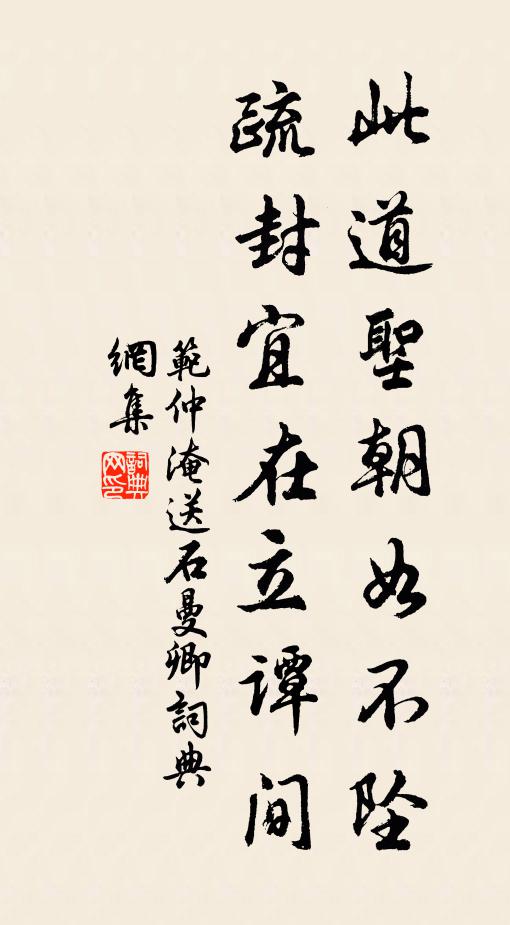 此道聖朝如不墜
疏封宜在立譚間
範仲淹送石曼卿詞典
網集
詞典网印